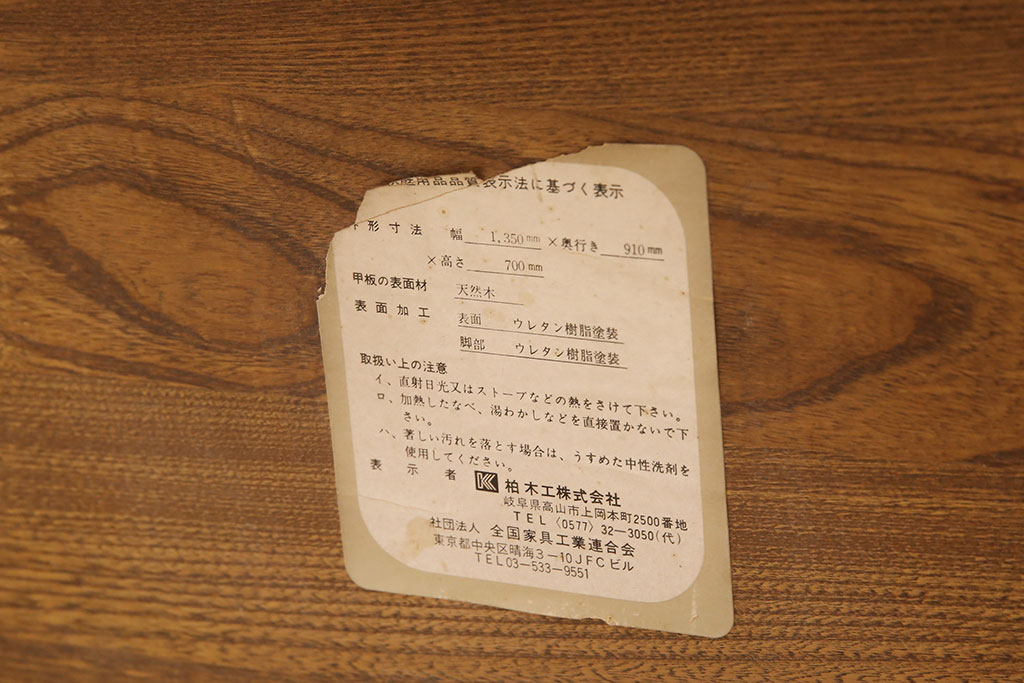 家庭用品品質表示法に基づく表示
外形寸法 幅 1,350mm ×奥行き 910mm
×高さ 700mm
甲板の表面材 天然木
表面加工 表面 ウレタン樹脂塗装
脚部 ウレタン樹脂塗装
取扱い上の注意
イ、直射日光又はストーブなどの熱をさけて下さい。
ロ、加熱したなべ、湯わかしなどを直接置かないで下
さい。
ハ、著しい汚れを落とす場合は、うすめた中性洗剤を
使用してください。
表示者 K 柏木工株式会社
岐阜県高山市上岡本町2500番地
TEL〈0577〉32-3050(代)
社団法人 全国家具工業連合会
東京都中央区晴海3-10JFCビル
TEL03-533-9551